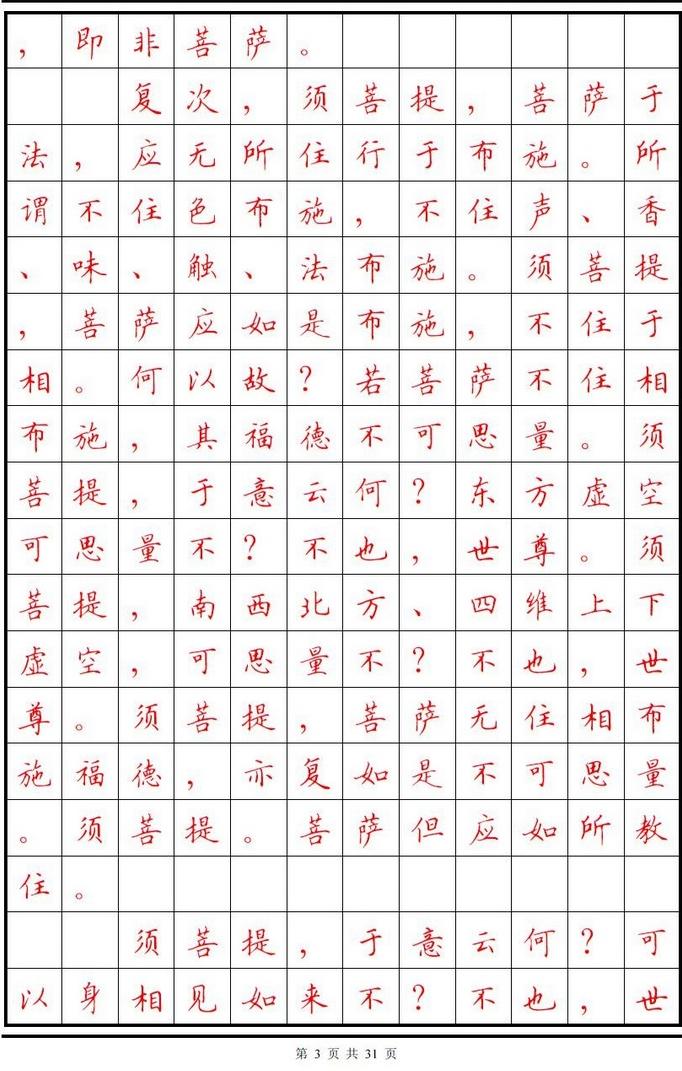 ，即非菩萨。
复次，须菩提，菩萨于
法，应无所住行于布施。所
谓不住色布施，不住声、香
、味、触、法布施。须菩提
，菩萨应如是布施，不住于
相。何以故？若菩萨不住相
布施，其福德不可思量。须
菩提，于意云何？东方虚空
可思量不？不也，世尊。须
菩提，南西北方、四维上下
虚空，可思量不？不也，世
尊。须菩提，菩萨无住相布
施福德，亦复如是不可思量
。须菩提。菩萨但应如所教
住。
须菩提，于意云何？可
以身相见如来不？不也，世
第 3 页 共 31 页